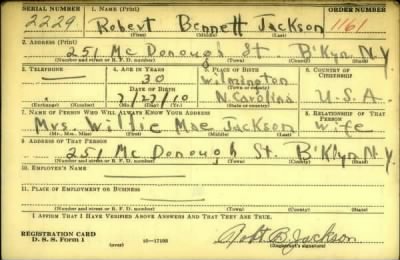 SERIAL NUMBER 1. NAME (Print) ORDER NUMBER
2229 Robert Bennett Jackson 1161
(First) (Middle) (Last)
2. ADDRESS (Print)
251 McDonough St. B'Klyn N.Y
(Number and street or R. F. D. number) (Town) (County) (State)
3. TELEPHONE 4. AGE IN YEARS 5. PLACE OF BIRTH 6. COUNTRY OF CITIZENSHIP
— 30 Wilmington
DATE OF BIRTH (Town or county)
N. Carolina U.S.A.
(Exchange) (Number) (Mo.) (Day) (Yr.) (State or country)
7. NAME OF PERSON WHO WILL ALWAYS KNOW YOUR ADDRESS 8. RELATIONSHIP OF THAT PERSON
Mrs. Willie Mae Jackson wife
(Mr., Mrs., Miss) (First) (Middle) (Last)
9. ADDRESS OF THAT PERSON
251 McDonough St. B'Klyn N.Y.
(Number and street or R. F. D. number) (Town) (County) (State)
10. EMPLOYER'S NAME —
11. PLACE OF EMPLOYMENT OR BUSINESS —
(Number and street or R. F. D. number) (Town) (County) (State)
I AFFIRM THAT I HAVE VERIFIED ABOVE ANSWERS AND THAT THEY ARE TRUE.
REGISTRATION CARD
D. S. S. Form 1 (over) 16—17105 Robt B. Jackson
(Registrant's signature)